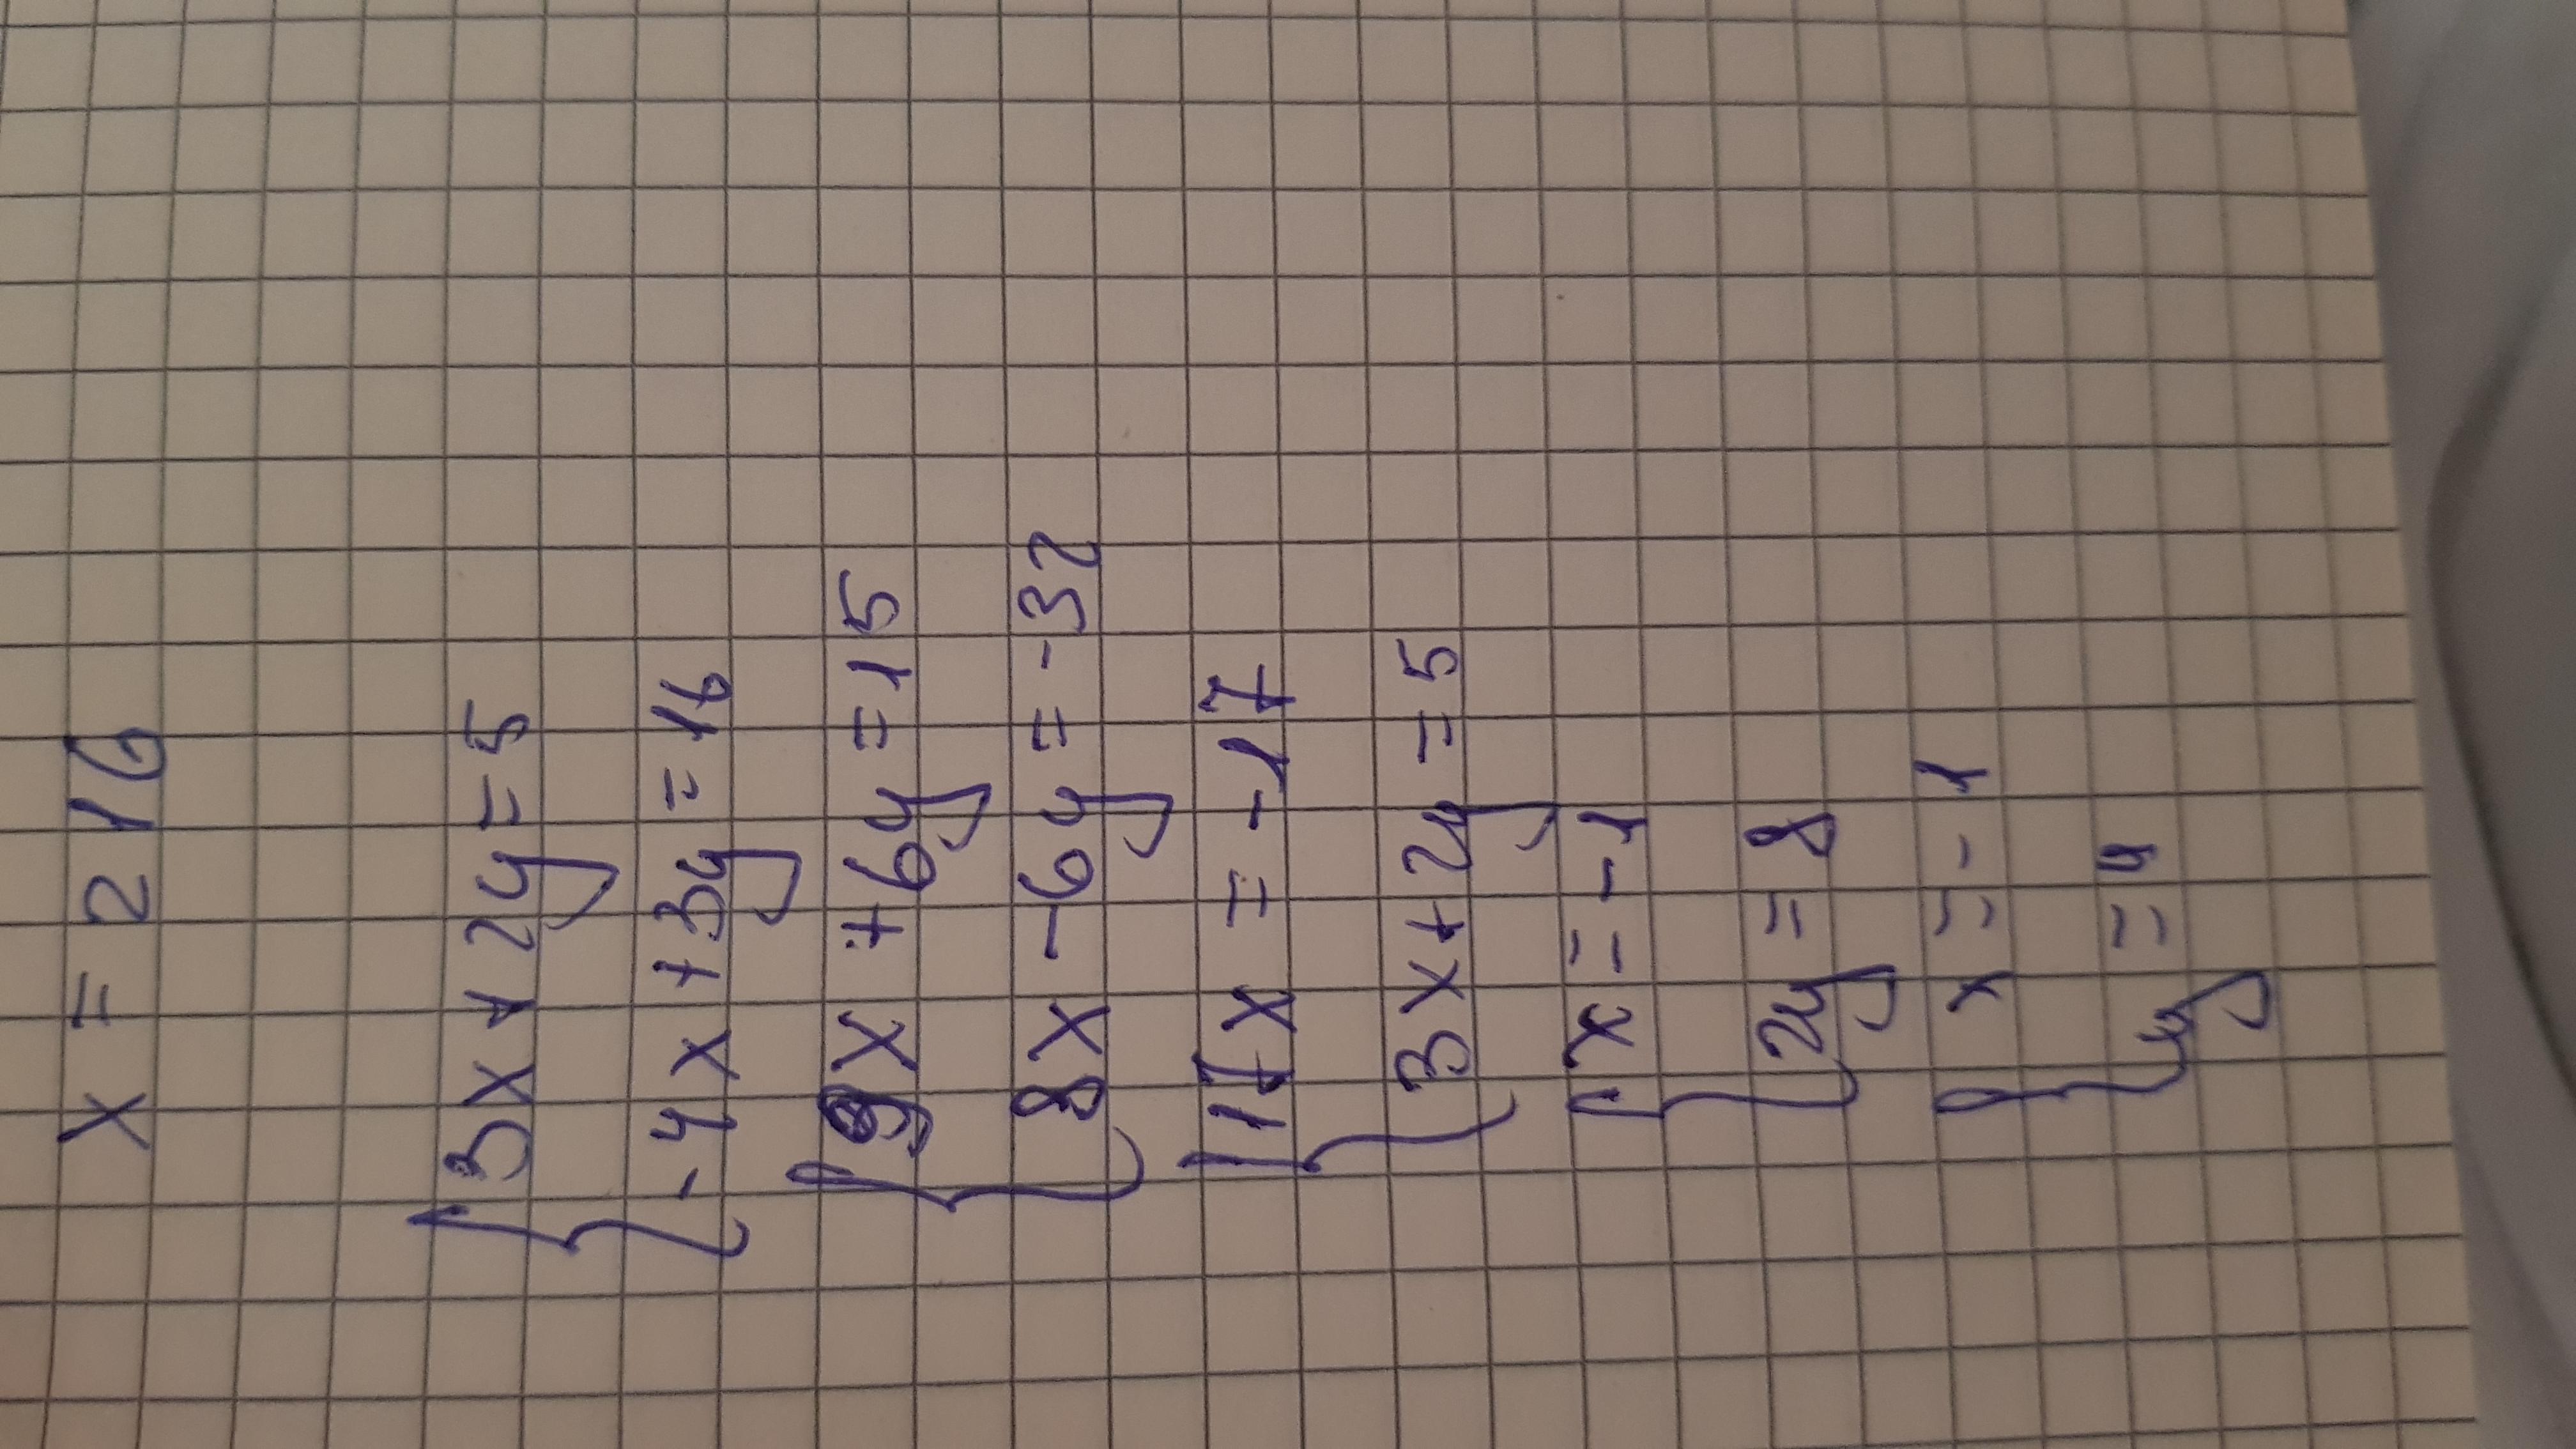 x = 216
3x + 2y = 5
-4x + 3y = 16
9x + 6y = 15
8x - 6y = -32
17x = -17
3x + 2y = 5
x = -1
2y = 8
x = -1
y = 4